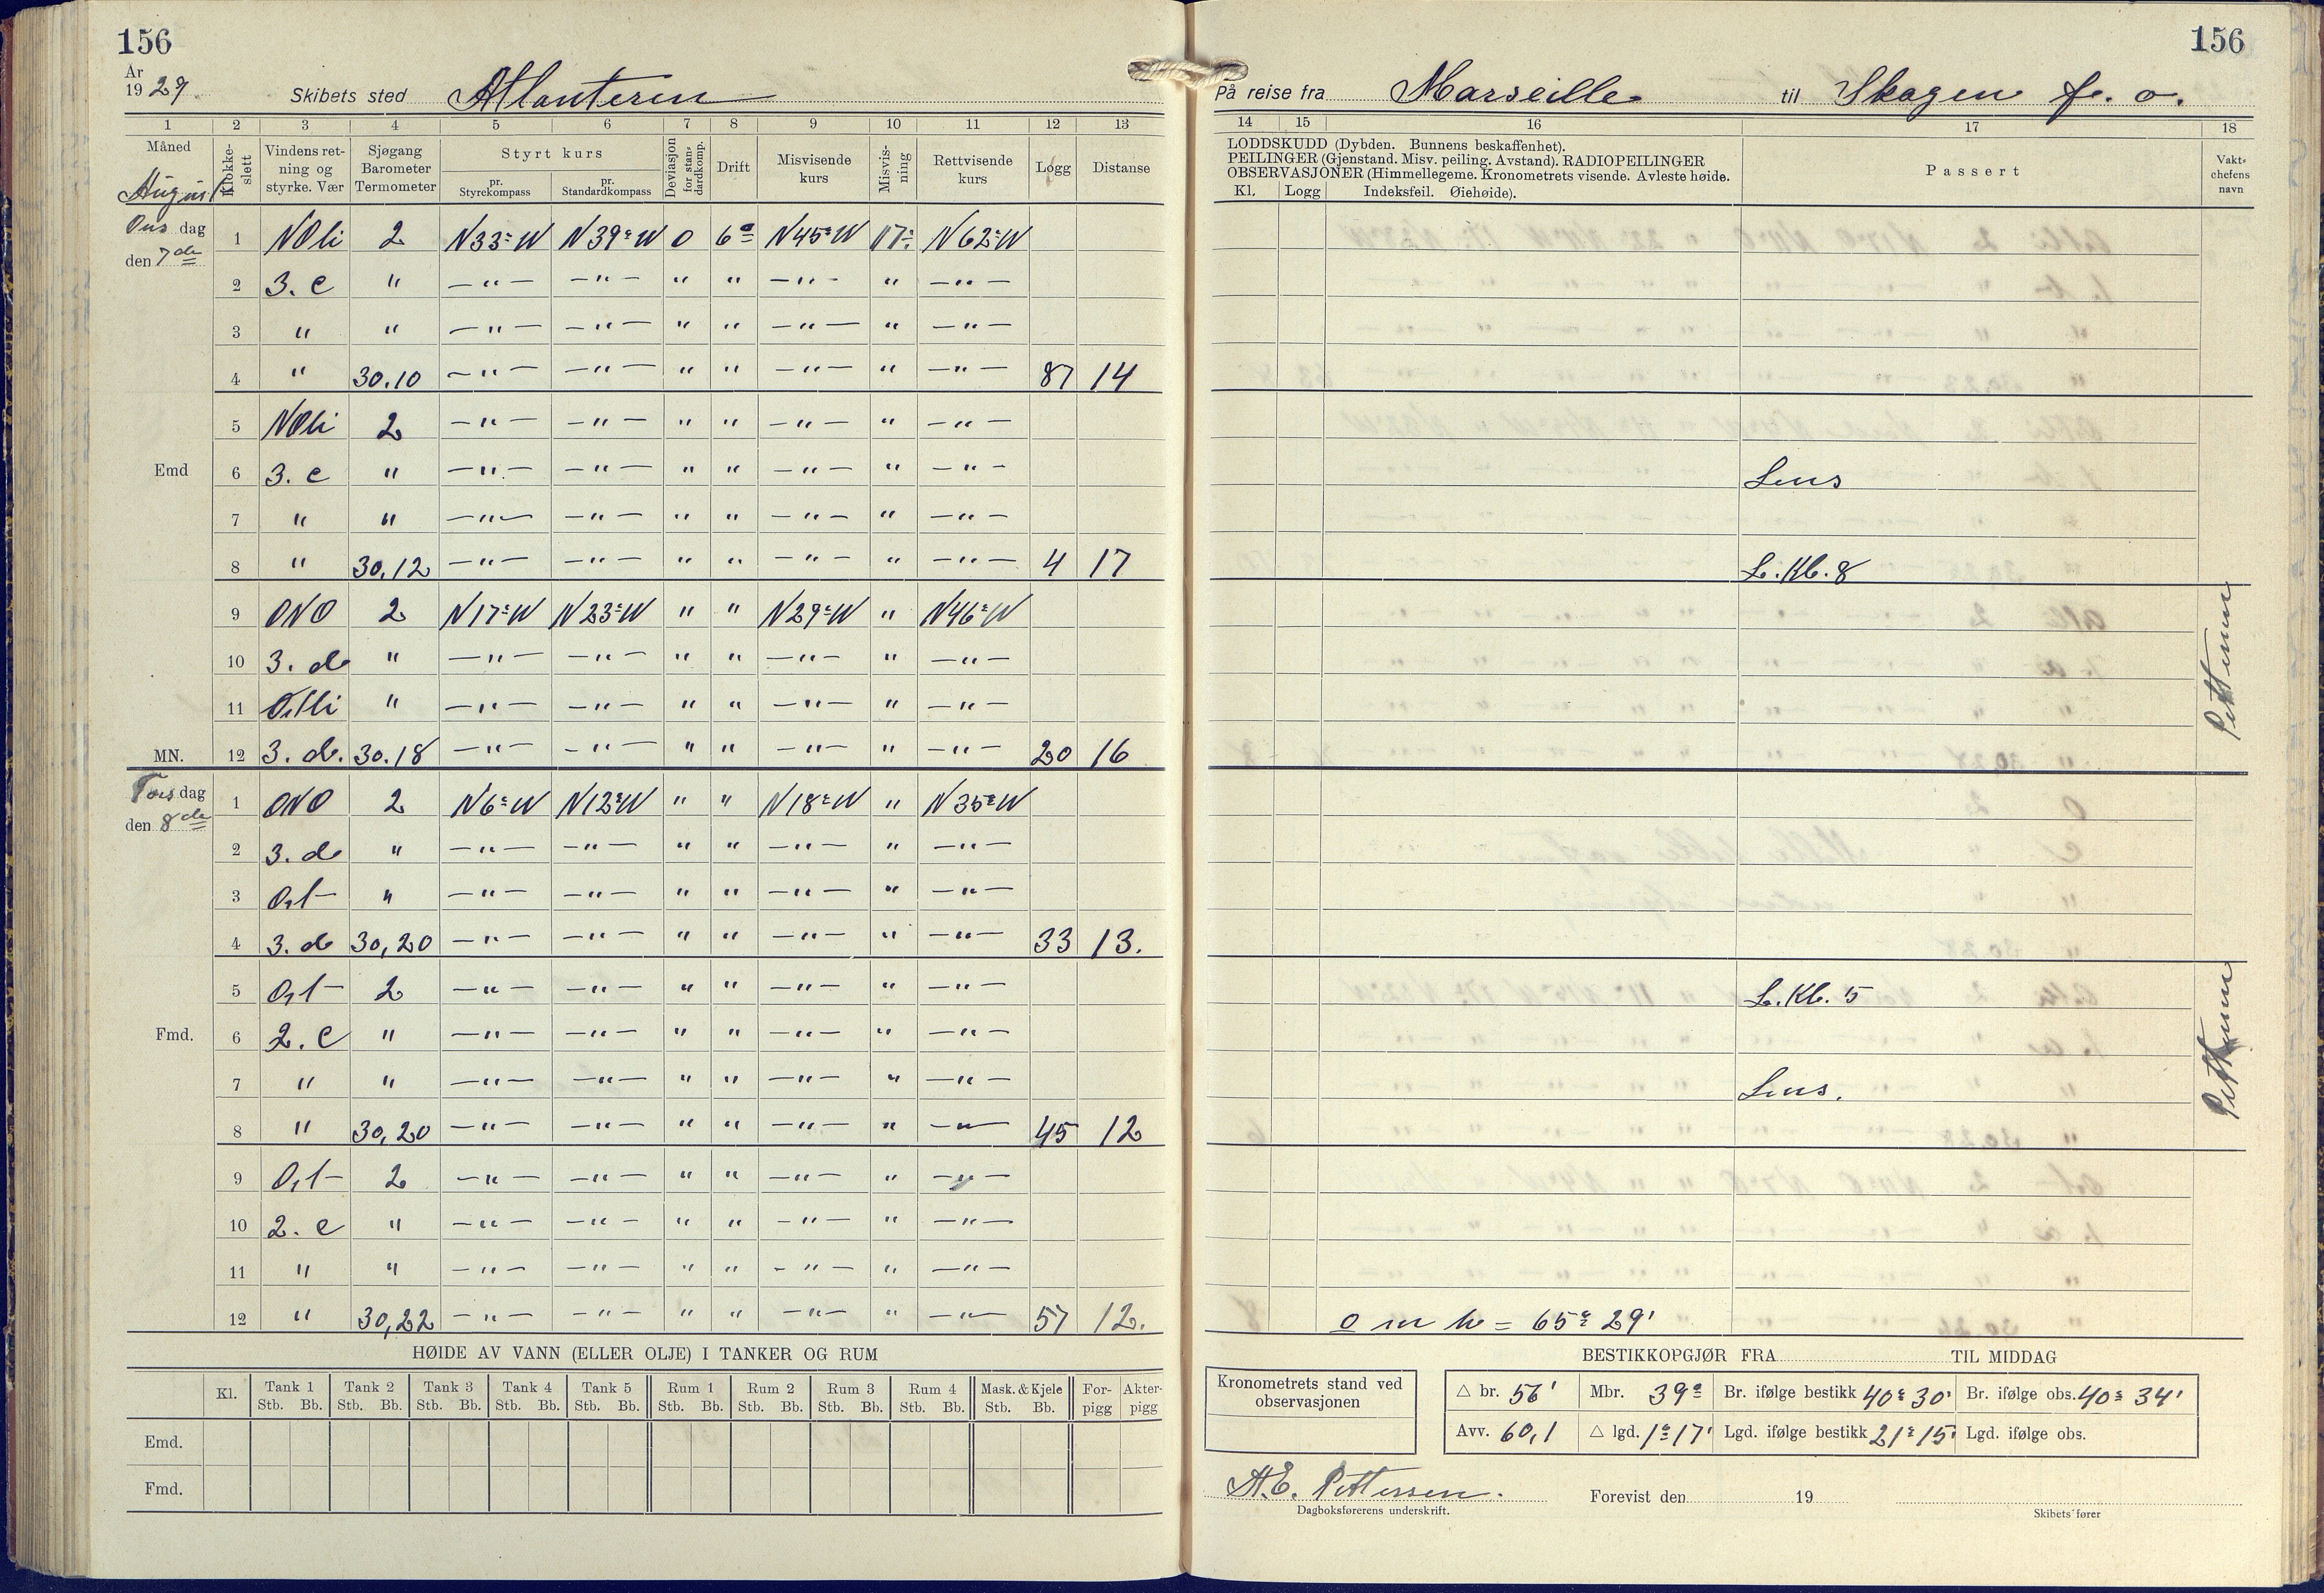 156
År
1929. Skibets sted Atlanteren
1 2 3 4 5 6 7 8 9 10 11 12 13
Måned August
Klokke-slett
Vindens retning og styrke. Vær
Sjøgang Barometer Termometer
Styrt kurs
pr. Styrekompass
pr. Standardkompass
Deviasjon for standardkomp.
Drift
Misvisende kurs
Misvisning
Rettvisende kurs
Logg
Distanse
Ons dag
den 7de
1 NOli 2 N33°W N39°W 0 6° N45°W 17° N62°W
2 3. c " —"— —"— " " —"— " —"—
3 " " —"— —"— " " —"— " —"—
4 " 30.10 —"— —"— " " —"— " —"— 87 14
5 NOli 2 —"— —"— " " —"— " —"—
Emd 6 3. c " —"— —"— " " —"— " —"—
7 " " —"— —"— " " —"— " —"—
8 " 30.12 —"— —"— " " —"— " —"— 4 17
9 ONO 2 N17°W N23°W " " N29°W " N46°W
10 3. d " —"— —"— " " —"— " —"—
11 Ostli " —"— —"— " " —"— " —"—
MN. 12 3. d. 30.18 —"— —"— " " —"— " —"— 20 16
Tors dag
den 8de
1 ONO 2 N6°W N12°W " " N18°W " N35°W
2 3. d " —"— —"— " " —"— " —"—
3 Ost " —"— —"— " " —"— " —"—
4 3. d 30,20 —"— —"— " " —"— " —"— 33 13.
5 Ost 2 —"— —"— " " —"— " —"—
Fmd. 6 2. c " —"— —"— " " —"— " —"—
7 " " —"— —"— " " —"— " —"—
8 " 30,20 —"— —"— " " —"— " —"— 45 12
9 Ost 2 —"— —"— " " —"— " —"—
10 2. c " —"— —"— " " —"— " —"—
11 " " —"— —"— " " —"— " —"—
12 " 30,22 —"— —"— " " —"— " —"— 57 12.
HØIDE AV VANN (ELLER OLJE) I TANKER OG RUM
Kl. Tank 1 Tank 2 Tank 3 Tank 4 Tank 5 Rum 1 Rum 2 Rum 3 Rum 4 Mask. & Kjele For-pigg Akter-pigg
Stb. Bb. Stb. Bb. Stb. Bb. Stb. Bb. Stb. Bb. Stb. Bb. Stb. Bb. Stb. Bb. Stb. Bb. Stb. Bb.
Emd.
Fmd.
156
På reise fra Marseille til Skagen f. o.
14 15 16 17 18
LODDSKUDD (Dybden. Bunnens beskaffenhet).
PEILINGER (Gjenstand. Misv. peiling. Avstand). RADIOPEILINGER
OBSERVASJONER (Himmellegeme. Kronometrets visende. Avleste høide.
Kl. Logg Indeksfeil. Øiehøide).
Passert
Vakt-chefens navn
Lens
L. Kl. 8
Pettersen
L. Kl. 5
Lens.
Pettersen
o m h = 65° 29'
BESTIKKOPGJØR FRA TIL MIDDAG
Kronometrets stand ved observasjonen
△ br. 56' Mbr. 39° Br. ifølge bestikk 40° 30' Br. ifølge obs. 40° 34'
Avv. 60,1 △ lgd. 1° 17' Lgd. ifølge bestikk 21° 15' Lgd. ifølge obs.
A.E. Pettersen.
Dagboksførerens underskrift.
Forevist den 19
Skibets fører